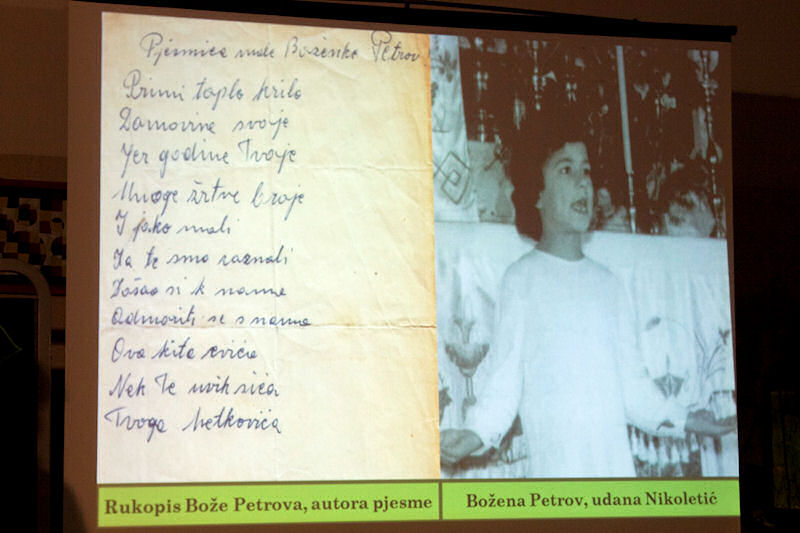 Pjesmica male Boženke Petrov
Primi toplo krilo
Domovine svoje
Yer godine Tvoje
Mnoge žrtve broje
I jako mali
Za te smo saznali
Došao si k nama
Odmoriti se s nama
Ova kita cvića
Nek Te uvik sića
Tvoga Metkovića
Rukopis Bože Petrova, autora pjesme
Božena Petrov, udana Nikoletić